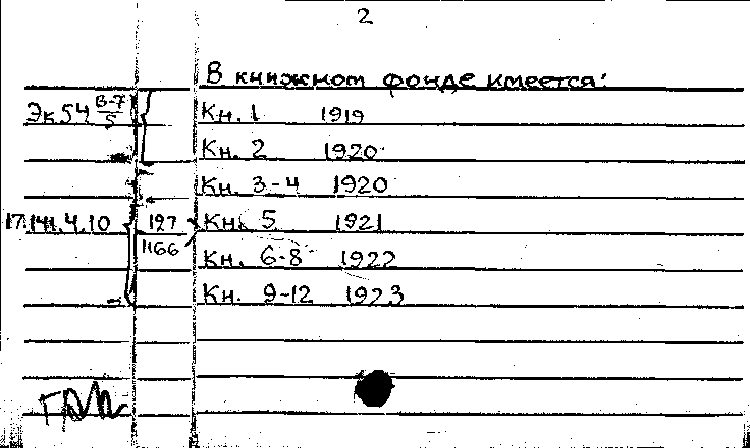 2
В книжном фонде имеется:
Эк 54 В-7/5 Кн. 1 1919
Кн. 2 1920
Кн. 3-4 1920
17.141.4.10 127 Кн. 5 1921
1166 Кн. 6-8 1922
Кн. 9-12 1923